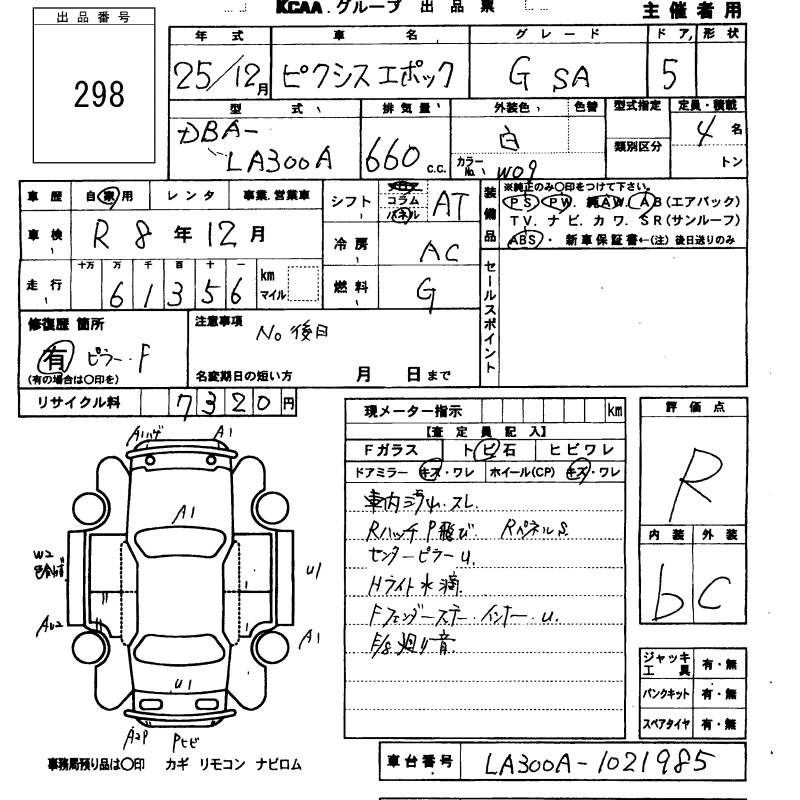 KCAA.グループ 出品票 主催者用
出品番号
298
年式 車名 グレード ドア 形状
25/12月 ピクシスエポック G SA 5
型式 排気量 外装色 色替 型式指定 定員・積載
DBA-
LA300A 660 c.c. 白 カラーNo. W09 類別区分 4名
トン
車歴 自家用 レンタ 事業.営業車
車検 R8年12月
走行 十万 万 千 百 十 一
61356 km マイル
シフト コラム パネル AT
冷房 AC
燃料 G
装備品 ※純正のみ〇印をつけて下さい。
PS. PW. 純AW. AB(エアバック)
TV. ナビ. カワ. SR(サンルーフ)
ABS・新車保証書←(注)後日送りのみ
セールスポイント
修復歴 箇所
有 ピラー.F
(有の場合は〇印を)
注意事項
No 後日
名変期日の短い方 月 日まで
リサイクル料 7320円
現メーター指示 km
【査定員記入】
Fガラス トビ石 ヒビワレ
ドアミラー キズ・ワレ ホイール(CP) キズ・ワレ
車内シミ.スレ
Rハッチ P飛び Rパネル S
センターピラー U.
Hライト水滴
Fフェンダーステー.インナー.U.
F/S廻り音
評価点
R
内装 外装
b C
ジャッキ工具 有・無
パンクキット 有・無
スペアタイヤ 有・無
Aハゲ A1
A1
W2
U1
AU2
A1
U1
A2P Pヒビ
事務局預り品は〇印 カギ リモコン ナビロム
車台番号 LA300A-1021985